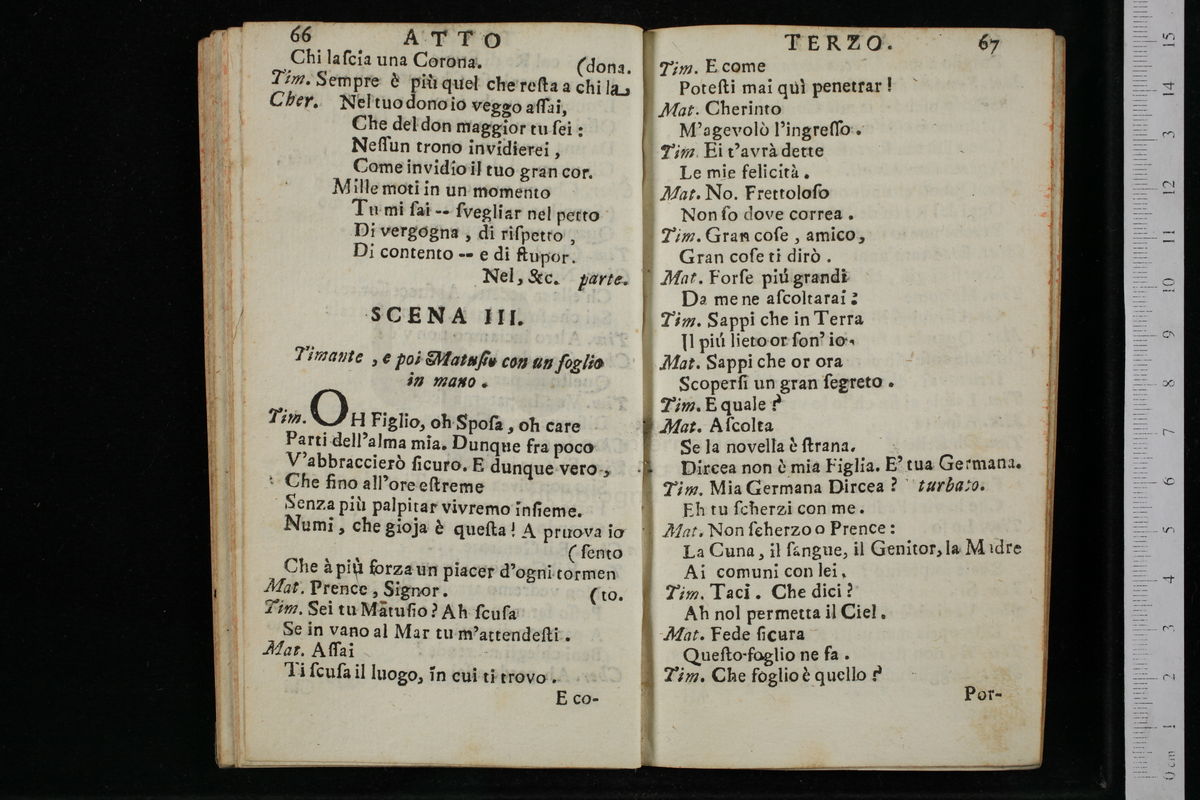 66 ATTO
Chi laſcia una Corona. (dona.
Tim. Sempre è più quel che reſta a chi la
Cher. Nel tuo dono io veggo aſſai,
Che del don maggior tu ſei :
Neſſun trono invidierei ,
Come invidio il tuo gran cor.
Mille moti in un momento
Tu mi fai -- ſvegliar nel petto
Di vergogna , di riſpetto ,
Di contento -- e di ſtupor.
Nel, &c. parte.
SCENA III.
Timante , e poi Matuſio con un foglio
in mano .
Tim. OH Figlio, oh Spoſa , oh care
Parti dell'alma mia. Dunque fra poco
V'abbraccierò ſicuro. E dunque vero ,
Che fino all'ore eſtreme
Senza più palpitar vivremo inſieme.
Numi , che gioja è queſta! A pruova io
(ſento
Che à più forza un piacer d'ogni tormen
Mat. Prence , Signor. (to.
Tim. Sei tu Matuſio? Ah ſcuſa
Se in vano al Mar tu m'attendeſti .
Mat. Aſſai
Ti ſcuſa il luogo, in cui ti trovo .
E co-
TERZO. 67
Tim. E come
Poteſti mai quì penetrar !
Mat. Cherinto
M'agevolò l'ingreſſo .
Tim. Ei t'avrà dette
Le mie felicità .
Mat. No. Frettoloſo
Non ſo dove correa .
Tim. Gran coſe , amico,
Gran coſe ti dirò .
Mat. Forſe piú grandi
Da me ne aſcoltarai ?
Tim. Sappi che in Terra
Il piú lieto or ſon' io.
Mat. Sappi che or ora
Scoperſi un gran ſegreto .
Tim. E quale ?
Mat. Aſcolta
Se la novella è ſtrana.
Dircea non è mia Figlia. E' tua Germana.
Tim. Mia Germana Dircea ? turbato.
Eh tu ſcherzi con me .
Mat. Non ſcherzo o Prence :
La Cuna , il ſangue, il Genitor, la Madre
Ai comuni con lei .
Tim. Taci . Che dici ?
Ah nol permetta il Ciel .
Mat. Fede ſicura
Queſto foglio ne fa .
Tim. Che foglio è quello ?
Por-